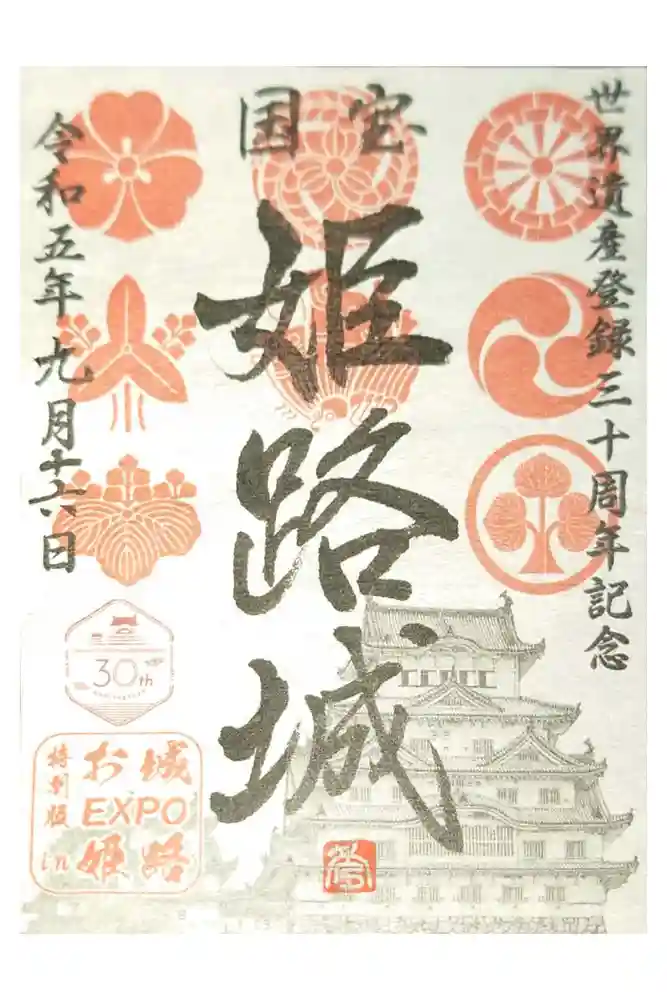 世界遺産登録三十周年記念
国宝
姫路城
令和五年九月十六日
30th
ANNIVERSARY
お城
EXPO
in 姫路
特別版